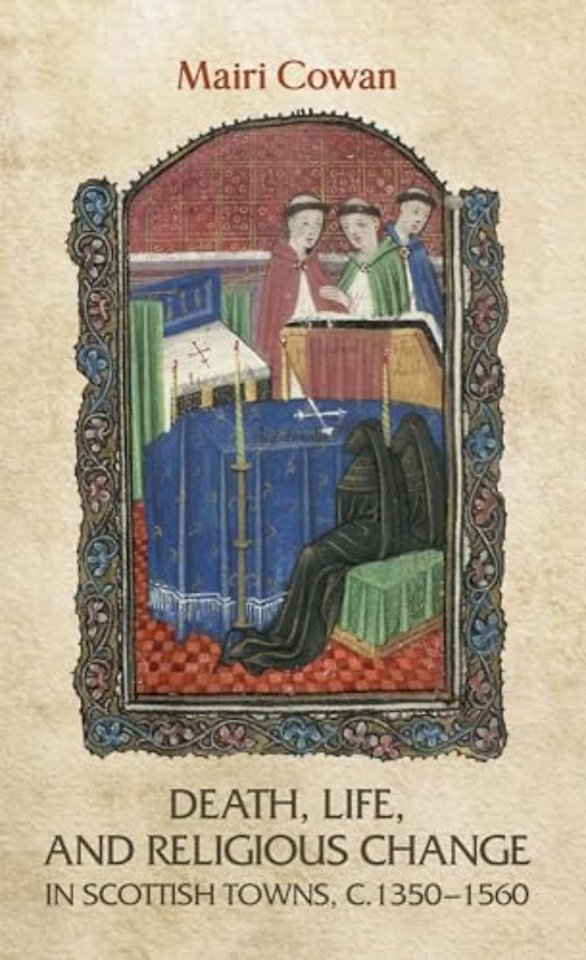 Mairi Cowan
DEATH, LIFE,
AND RELIGIOUS CHANGE
IN SCOTTISH TOWNS, C.1350–1560